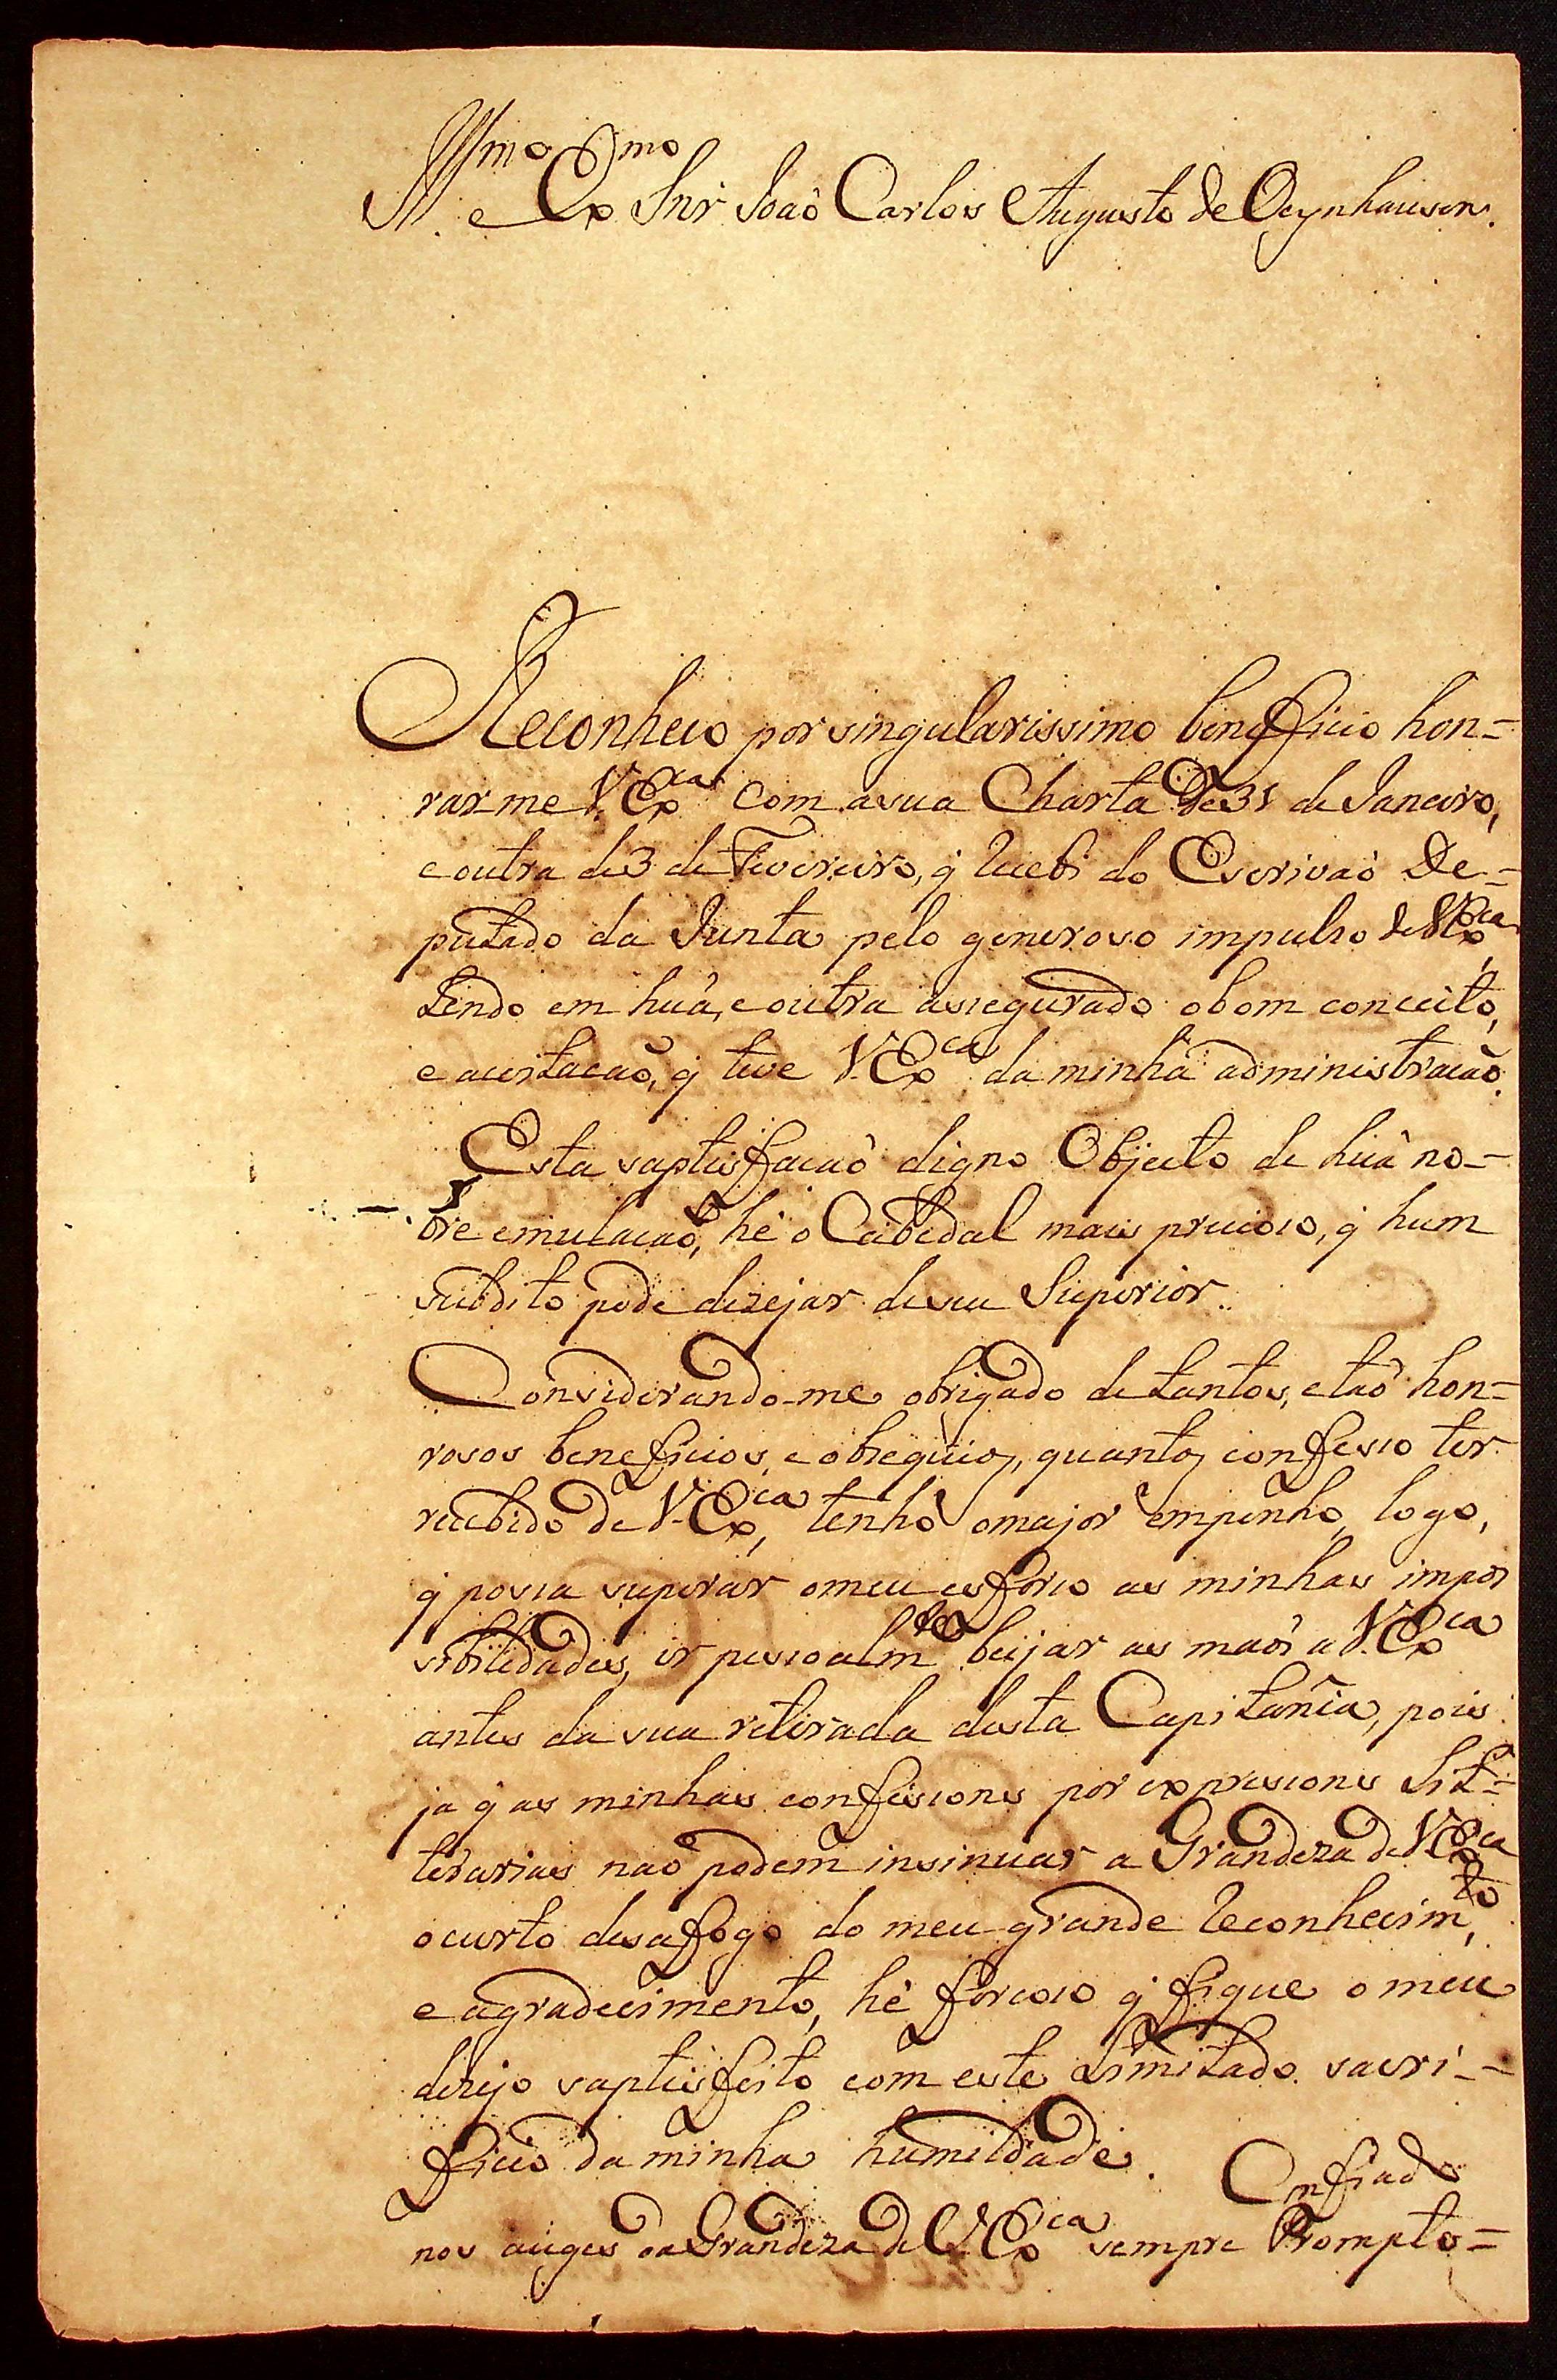 Illmo e Exmo Snr Joaõ Carlos Augusto de Oeynhausen.
Reconheco por singularissimo beneficio hon=
rar me V. Exca com a sua Charta De 31 de Janeiro,
e outra de 3 de Fevereiro, q̃ recebi do Escrivaõ De=
putado da Junta pelo generoso impulso de V. Exca,
Lendo em huã, e outra assegurado o bom conceito,
e aceitacaõ, q̃ teve V. Exca da minha administracaõ.
Esta saptisfacaõ digno Objecto de huã no=
bre emulacaõ, hé o Cabedal mais precioso, q̃ hum
subdito pode dezejar de seu Superior.
Considerando-me obrigado de tantos, e taõ hon=
rosos beneficios, e obsequios, quantos confesso ter
recebido de V. Exca, tenho o major empenho, logo,
q̃ possa superar o meu esforco as minhas impos
sibilidades, ir pessoalmte beijar as maõs a V. Exca
antes da sua retirada desta Capitania, pois
ja q̃ as minhas confissiones por expressiones Lit=
terarias naõ podem insinuar a Grandeza de V. Exca
o curto desafogo do meu grande reconhecimto,
e agradecimento, hé forcoso q̃ fique o meu
dezejo saptisfeito com este Limitado sacri=
ficio da minha humildade. Confiado
nos auges da Grandeza de V. Exca sempre Prompto=